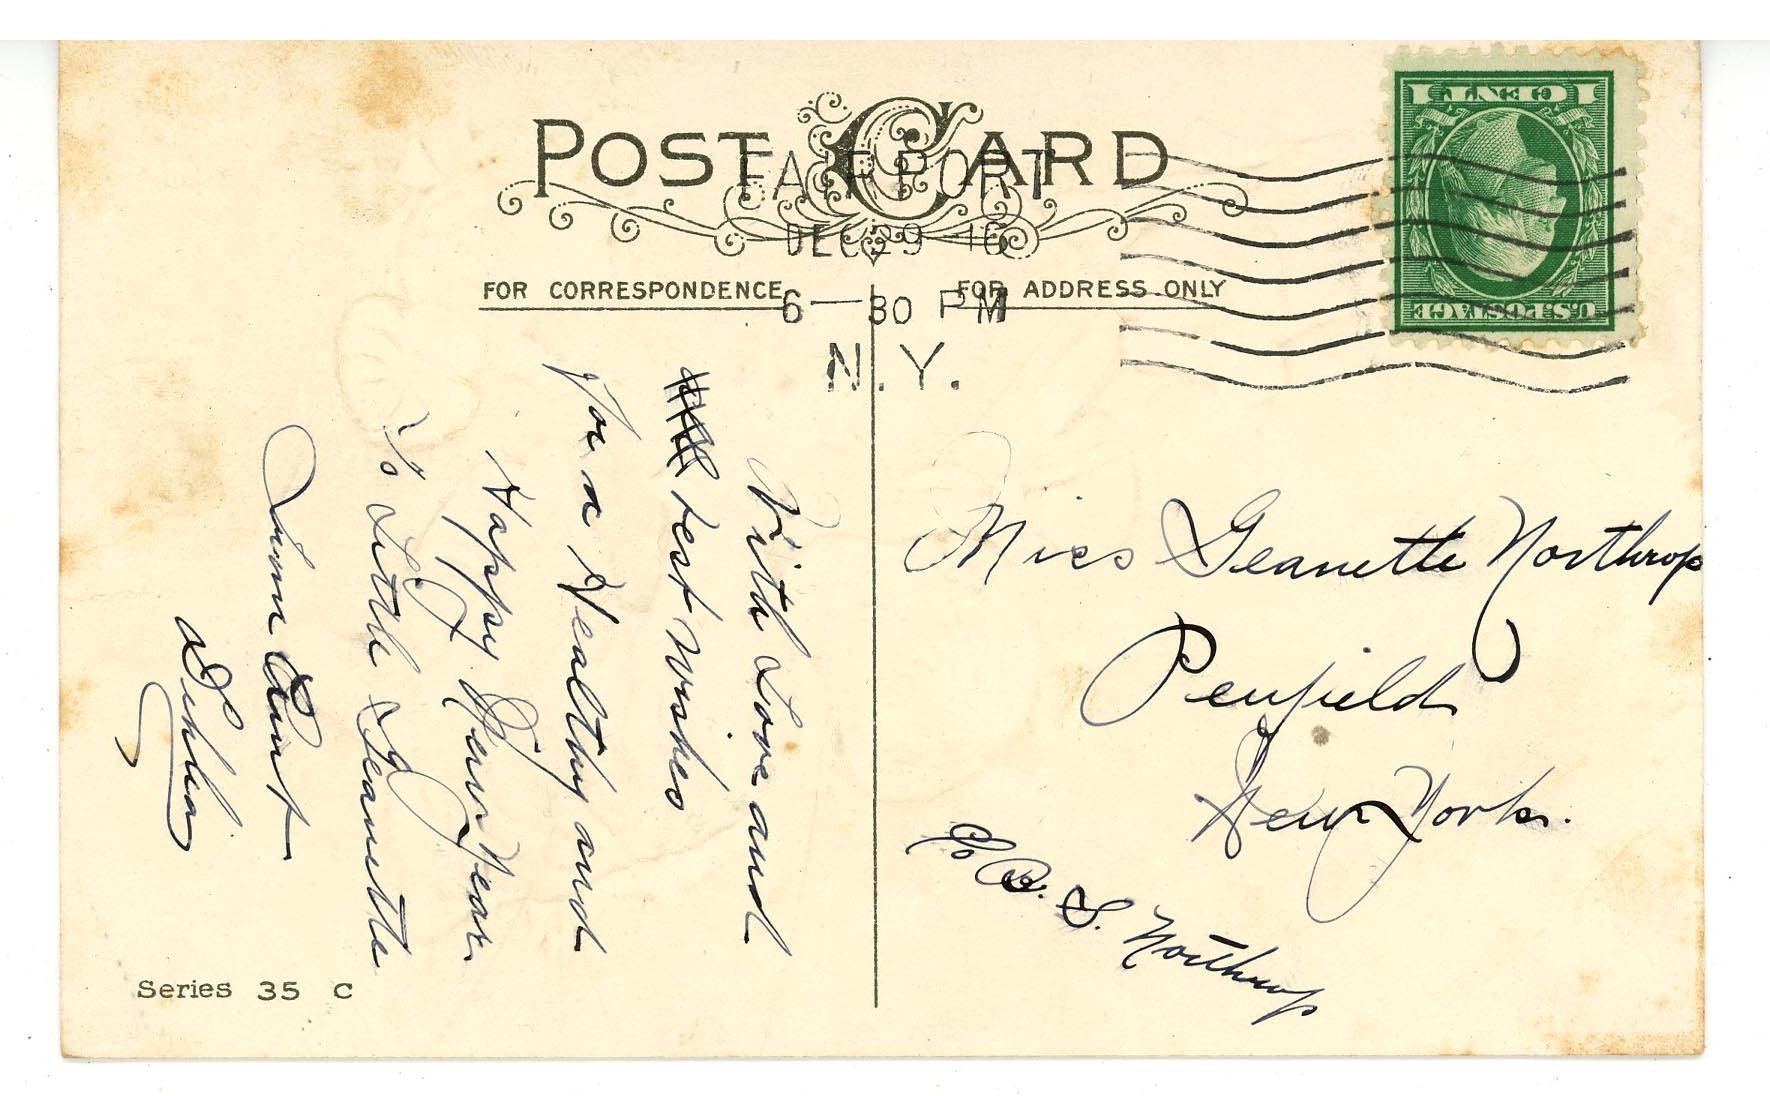 POST CARD
FAIRPORT
DEC 29 16
6—30 PM
N.Y.
1 CENT 1
U.S. POSTAGE
FOR CORRESPONDENCE
FOR ADDRESS ONLY
With Love and
best wishes
for a Healthy and
Happy New Year
To Little Geanette
From Aunt
Miss Geanette Northrop
Penfield
New York.
c/o B. S. Northrop
Series 35 C